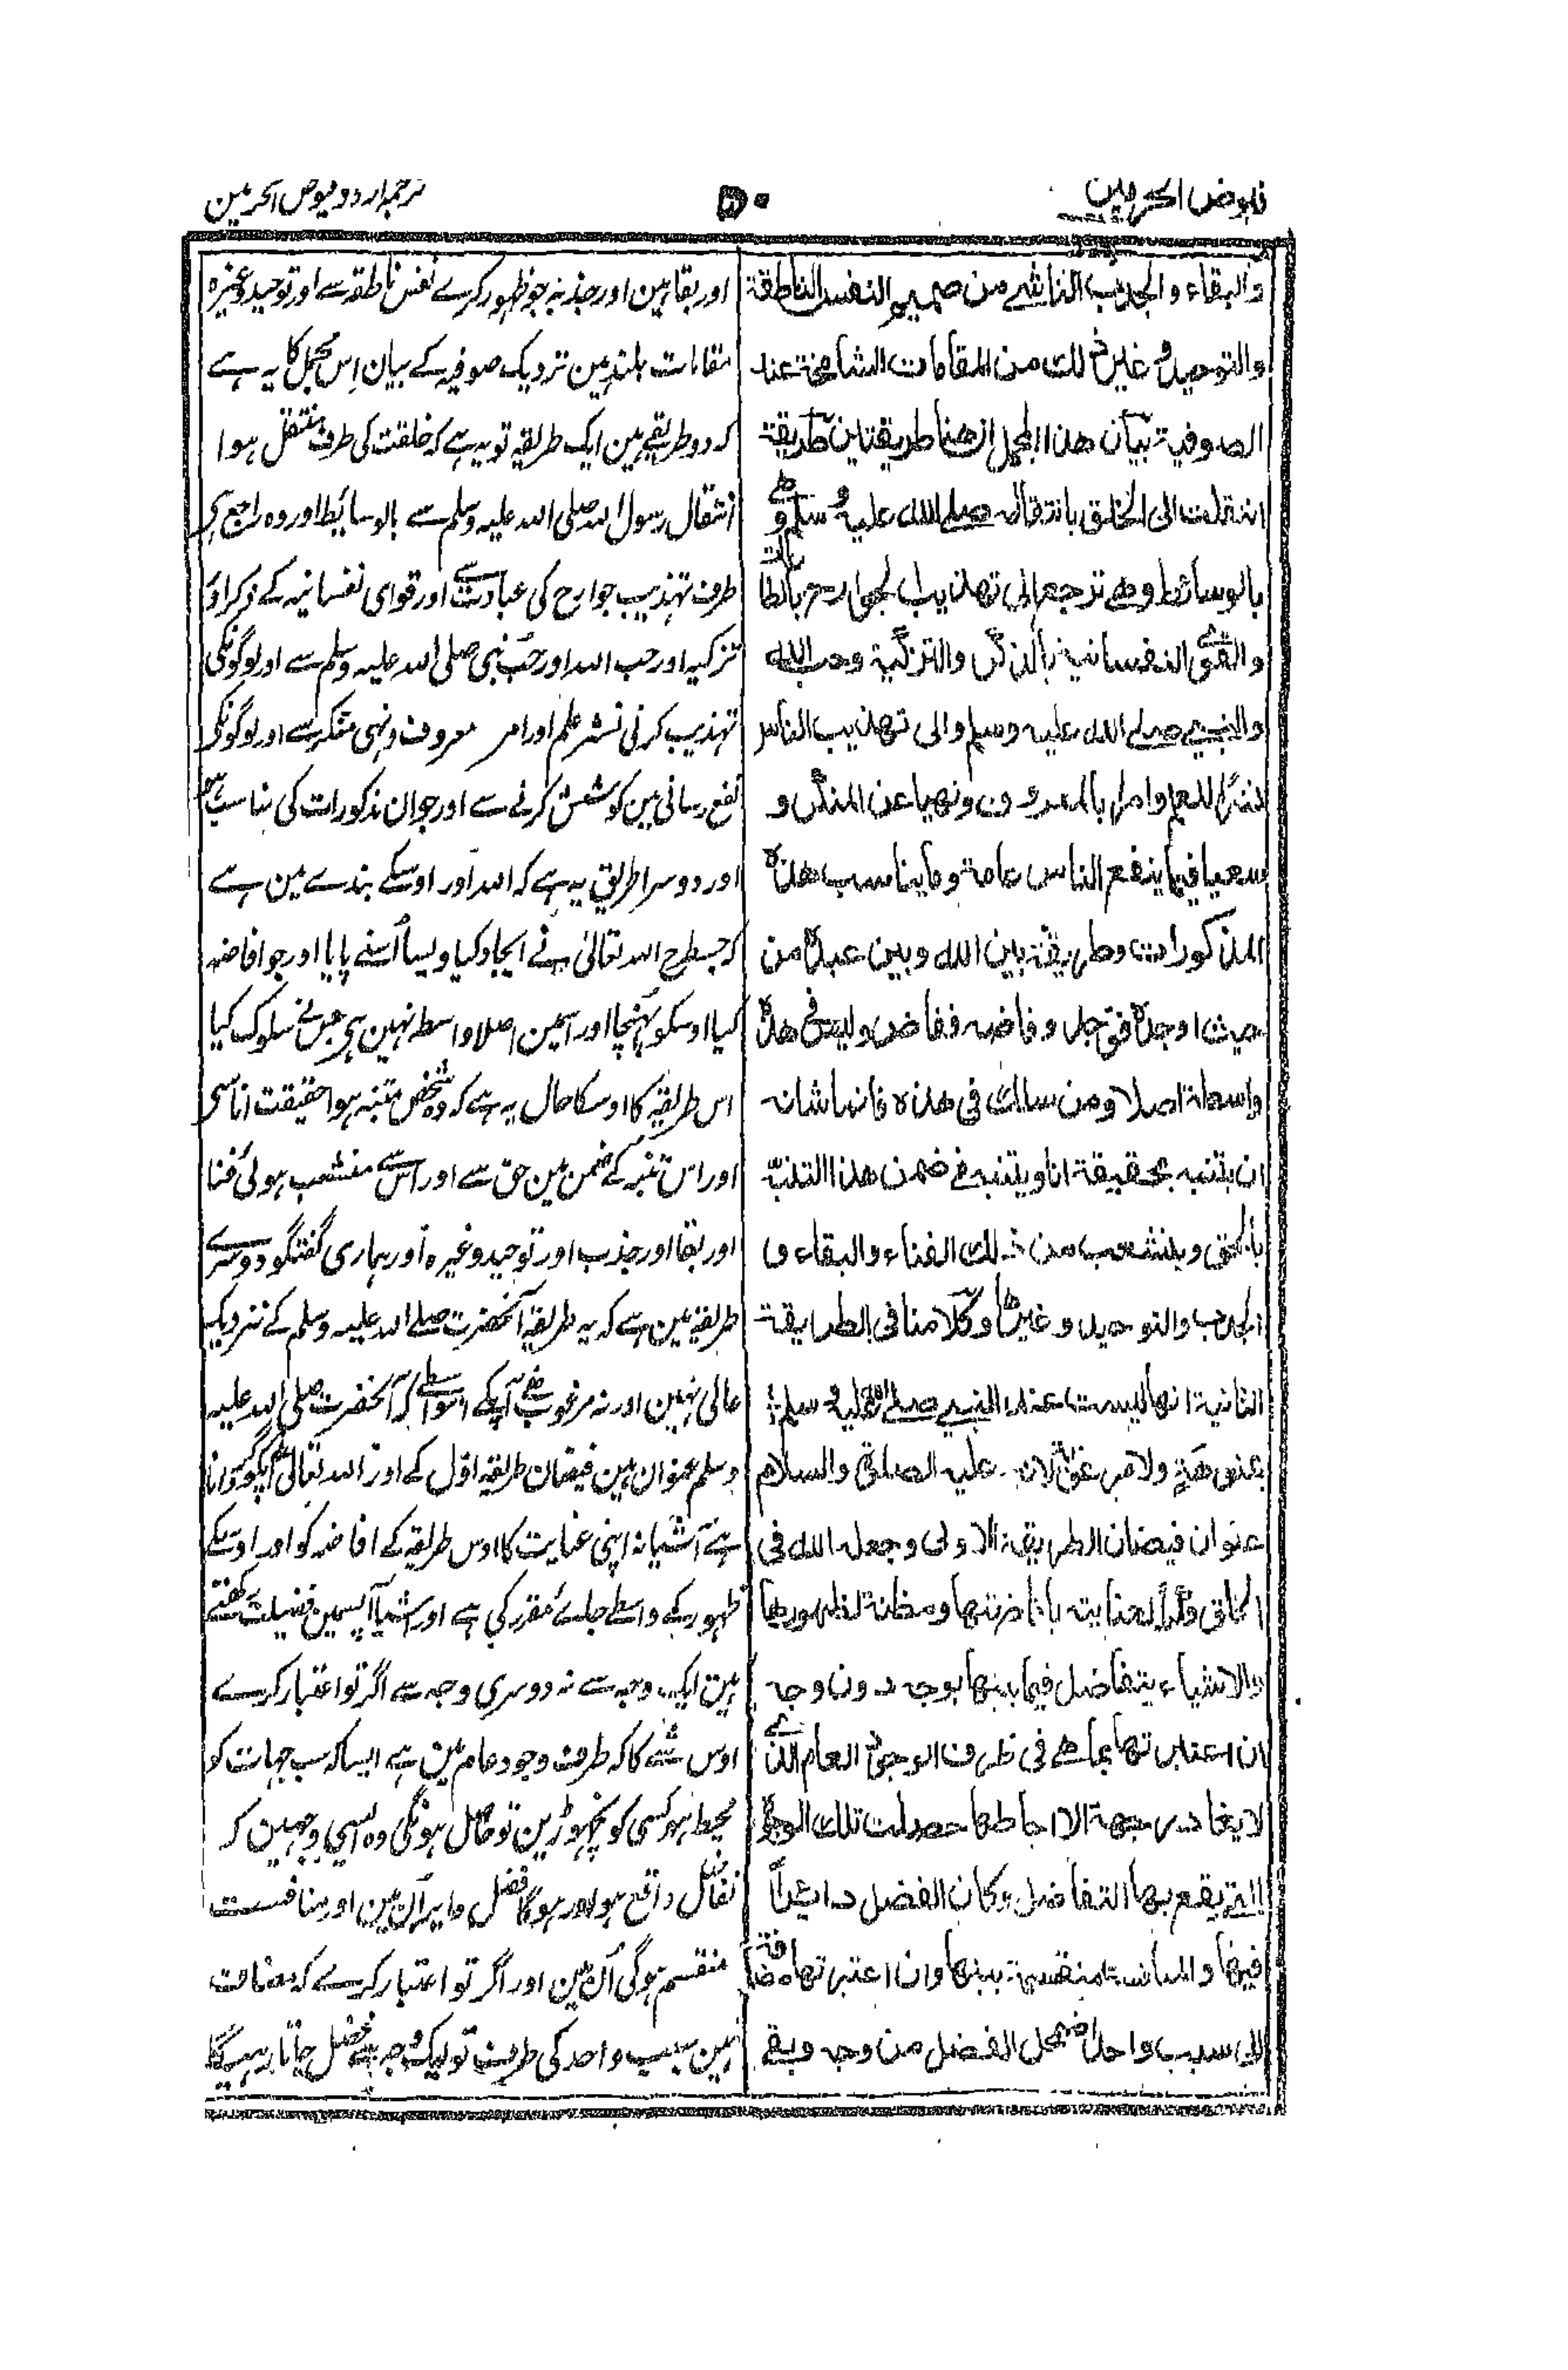 فیوض الحرمین
۵۰
ترجمہ اردو فیوض الحرمین
والبقاء والجذب الناشے من صمیم النفس الناطقة
والتوحید و غیر ذلک من المقامات الشامخة عند
الصوفیة بیان هذا المجمل ان ههنا طریقتین طریقة
انتقلت الی الخلق بانتقاله صلے الله علیه و سلم و هی
بالوسائط وهے ترجع الی تهذیب الجوارح بالطاعات
والقوی النفسانیة بالذکر والتزکیة وحب الله
والنبی صلے الله علیه وسلم والی تهذیب الناس
نشرا للعلم وامرا بالمعروف ونهیا عن المنکر و
سعیا فیما ینفع الناس عامة وما یناسب هذه
المذکورات وطریقة بین الله وبین عبده من
حیث اوجده فوجد وفاضه ففاض ولیس فی هذه
واسطة اصلا ومن سلک فی هذه فانما شانه
ان یتنبه بحقیقة انا ویتنبه فے ضمن هذا التنبه
بالحق وینشعب من ذلک الفناء والبقاء و
الجذب والتوحید وغیرها وکلامنا فی الطریقة
الثانیة انها لیست عند النبی صلے الله علیه و سلم
ولا مرغوبة لانه علیه الصلوة والسلام
عنوان فیضان الطریقة الاولی وجعله الله فی
الخلق وکرا لعنایته بافاضتها ومظنة لظهورها
والاشیاء یتفاضل فیما بینها بوجه دون وجه
ان اعتبرتها بما هے فی ظرف الوجود العام الذے
لا یغادر جهة الا احاطها حصلت تلک الوجوه
التے یقع بها التفاضل وکان الفضل دائرا
فیها والمنافسة منقسمة بینها وان اعتبرتها مضافة
الی سبب واحد اضمحل الفضل من وجه وبقے
اور بقا ہین اور جذبہ جو ظہور کرے نفس ناطقہ سے اور توحید وغیرہ
مقامات بلند ہین نزدیک صوفیہ کے بیان اِس مجمل کا یہ ہے
کہ دو طریقے ہین ایک طریقہ تو یہ ہے کہ خلقت کی طرف منتقل ہوا
انتقال رسول اللہ صلی اللہ علیہ وسلم سے بالوسائط اور وہ راجع ہی
طرف تہذیب جوارح کی عبادت سے اور قوای نفسانیہ کے ذکر اور
تزکیہ اور حب اللہ اور حب نبی صلی اللہ علیہ وسلم سے اور لوگونکی
تہذیب کرنی نشر علم اور امر معروف ونہی منکر سے اور لوگونکی
نفع رسانی مین کوشش کرنے سے اور جو ان مذکورات کی مناسب ہے
اور دوسرا طریق یہ ہے کہ اللہ اور اوسکے بندے مین ہے
کہ جسطرح اللہ تعالیٰ نے ایجاد کیا ویسا اُسنے پایا اور جو افاضہ
کیا اوسکو پہُنچا اور اسمین اصلا واسطہ نہین ہی جس نے سلوک کیا
اس طریقہ کا اوسکا حال یہ ہے کہ وہ شخص متنبہ ہوا حقیقت انا سی
اور اس تنبہ کے ضمن مین حق سے اور اس سے منشعب ہوئی فنا
اور بقا اور جذب اور توحید وغیرہ اور ہماری گفتگو دوسرے
طریقہ مین ہے کہ یہ طریقہ آنحضرت صلے اللہ علیہ وسلم کے نزدیک
عالی نہین اور نہ مرغوب ہے آپکے اسواسطے کہ آنحضرت صلی اللہ علیہ
وسلم عنوان ہین فیضان طریقہ اوّل کے اور اللہ تعالیٰ نے آپکو گردانا
ہے آشیانہ اپنی عنایت کا اوس طریقہ کے افاضہ کو اور اوسکے
ظہور کے واسطے جائے مقرر کی ہے اور اشیا آپسمین فضیلت رکھتے
ہین ایک وجہ سے نہ دوسری وجہ سے اگر تو اعتبار کرے
اوس شے کا کہ ظرف وجود عام مین ہے ایسا کہ سب جہات کو
محیط ہو کسی کو نچھوڑین تو حاصل ہونگی وہ ایسی وجہین کہ
تفاضل واقع ہو اور ہوگا فضل دایر اُن مین اور منافست
منقسم ہوگی اُن مین اور اگر تو اعتبار کرے کہ مضافت
ہین سبب واحد کی طرف تو ایک وجہ سے فضل جاتا رہیگا